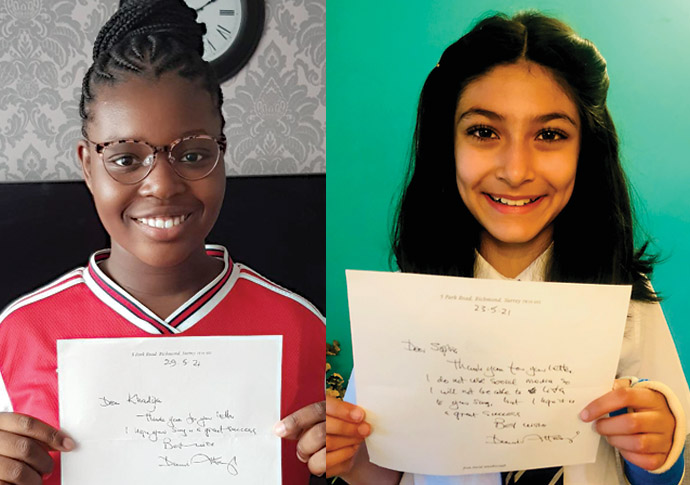 5 Park Road, Richmond Surrey
29.5.21
Dear Khadija
Thank you for your letter
I hope your song is a great success
Best wishes
David Attenborough
5 Park Road, Richmond Surrey
23.5.21
Dear Sophia
Thank you for your letter.
I do not use social media so
I will not be able to
your song, but I hope it is
a great success
Best wishes
David Attenborough